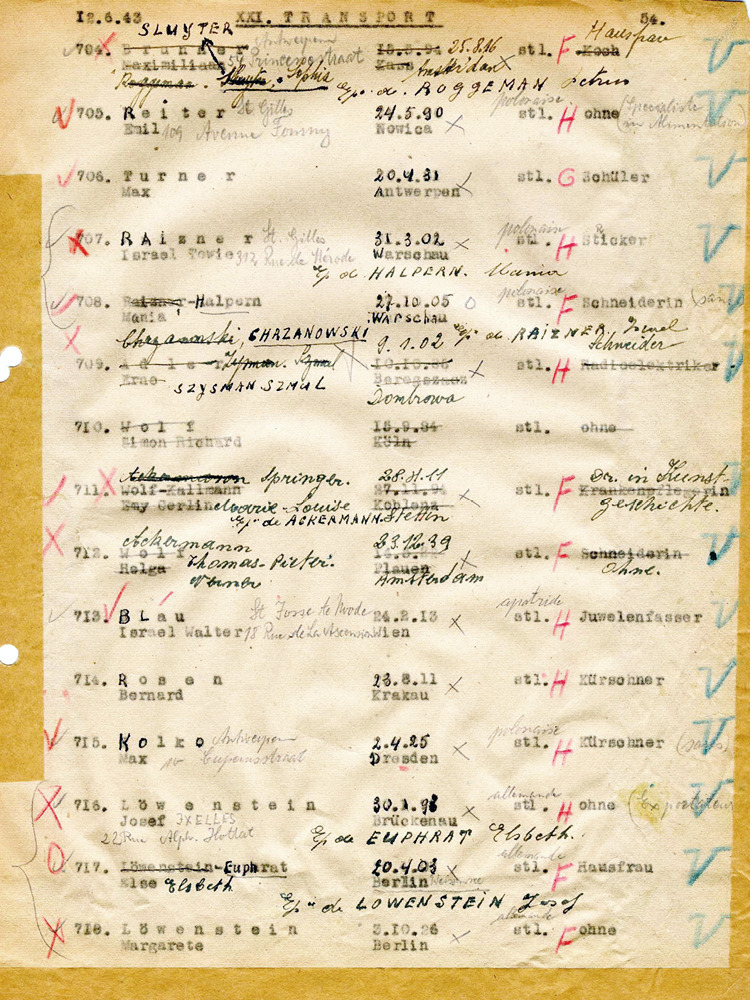 12.6.43 XXI. TRANSPORT 54.
SLUYTER Antwerpen Hausfrau
704. Brunner 54 Prinsesstraat 18.5.94 25.8.16 stl. F Koch
Maximiliaan Amsterdam
Roggeman. Sluyter, Sophia Ep. de ROGGEMAN Petrus
705. Reiter St Gilles 24.5.90 polonaise stl. H ohne (Specialiste
Emil 109 Avenue Fonsny Nowica in Alimentation)
706. Turner 20.4.31 stl. G Schüler
Max Antwerpen
707. RAizner St. Gilles 31.3.02 polonain stl. H Sticker
Israel Towie 312 Rue de Mérode Warschau
Ep de HALPERN. Mania
708. Raizner-Halpern 27.10.05 polonaise stl. F Schneiderin (sans
Mania Warschau
Chrzanowski, CHRZANOWSKI 9.1.02 Ep. de RAIZNER Israel
Schneider
709. Adler Szysman. Szmul 10.10.26 stl. H Radioelektriker
Erno SZYSMAN SZMUL Beregszasz
Dombrowa
710. Wolf 15.9.84 stl. ohne
Simon Richard Köln
Ackermann Springer. 28.11.11 Dr. in Kunst-
711. Wolf-Kallmann 27.11.94 stl. F Krankenpflegerin
Emy Gerline Marie-Louise Koblenz geschichte.
Ep. de ACKERMANN. Stettin
Ackermann 23.12.39
712. Wolf Thomas-Pieter. stl. F Schneiderin
Helga Werner Plauen Ohne.
Amsterdam
713. BLau St Josse te Noode 24.2.13 apatride stl. H Juwelenfasser
Israel Walter 18 Rue de La Ascension Wien
714. Rosen 23.8.11 stl. H Kürschner
Bernard Krakau
715. Kolko Antwerpen 2.4.25 polonaise stl. H Kürschner (sans)
Max Dresden
716. Löwenstein 30.1.98 allemande stl. H ohne (Exportateur
Josef IXELLES Brückenau
22 Rue Alph. Hottat Ep de EUPHRAT Elsbeth.
717. Löwenstein-Euphrat 20.4.03 allemande stl. F Hausfrau
Else Elsbeth Berlin
Ep. de LOWENSTEIN Josef
718. Löwenstein 3.10.26 allemande stl. F ohne
Margarete Berlin